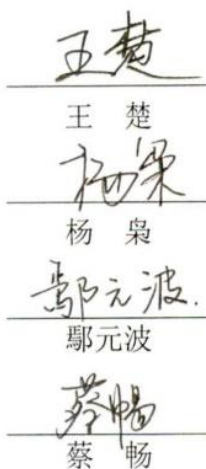 王楚
王 楚
杨枭
杨 枭
鄢元波.
鄢元波
蔡畅
蔡 畅